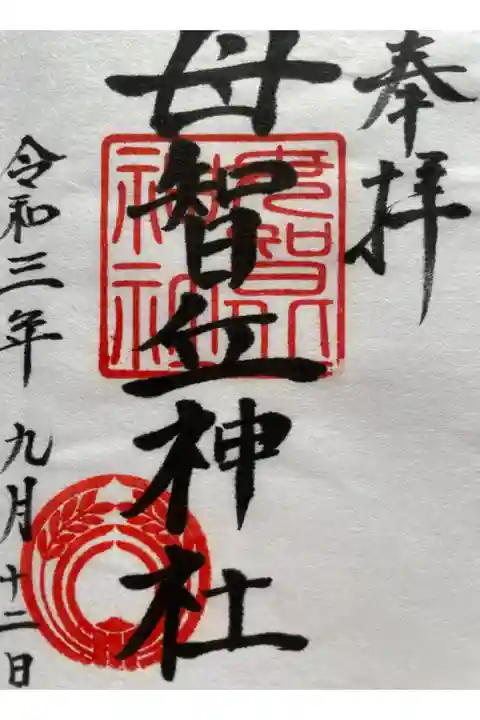 奉拝
母智丘神社
令和三年 九月十二日